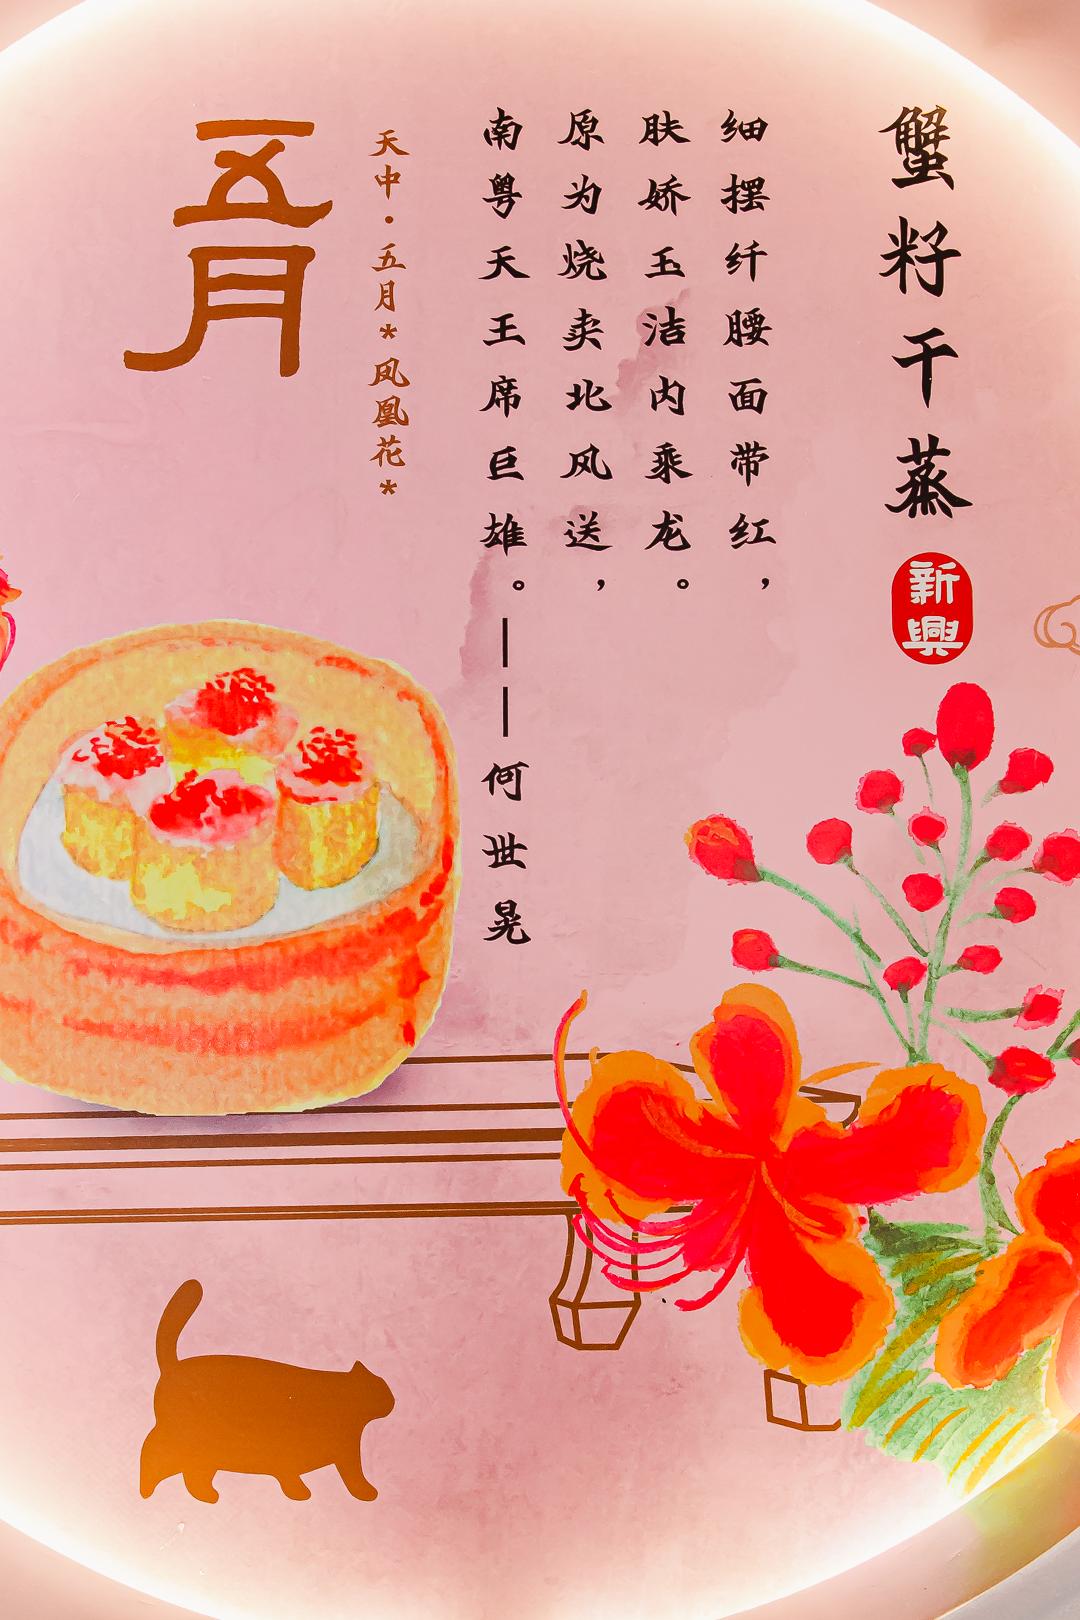 蟹籽干蒸
新興
细摆纤腰面带红，
肤娇玉洁内乘龙。
原为烧卖北风送，
南粤天王席巨雄。——何世晃
天中·五月*凤凰花*
五月